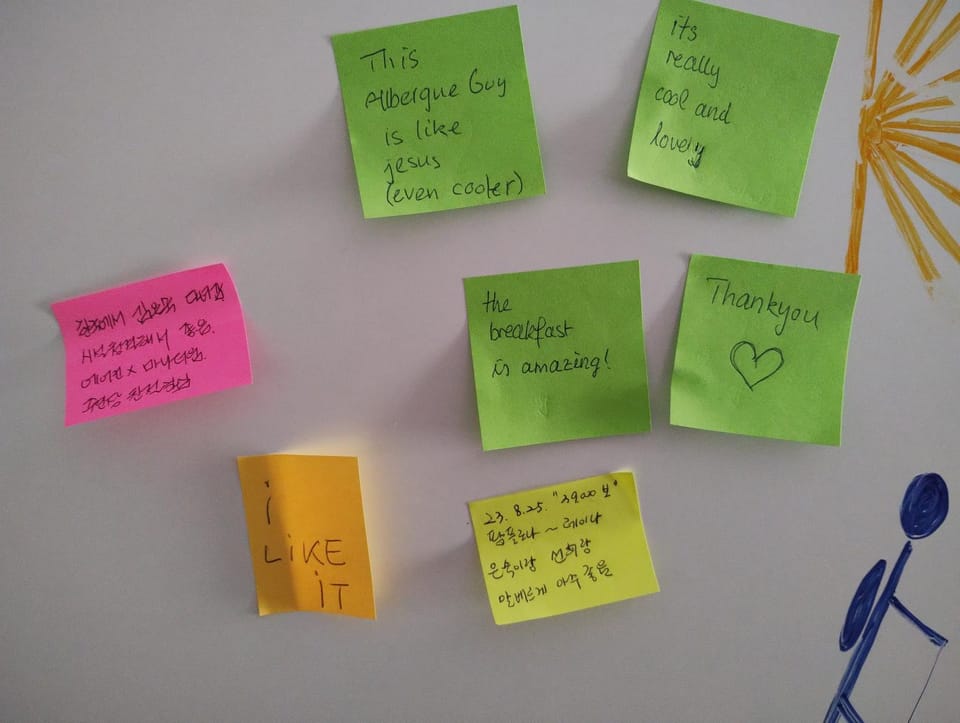 This
Alberque Guy
is like
jesus
(even cooler)
its
really
cool and
lovely
the
breakfast
is amazing!
Thankyou
에어컨 x
i
LiKE
iT
23. 8.25. "39000 보"
팜플로나 ~ 레이나
은숙이랑 선희랑
알베르게 아주 좋음